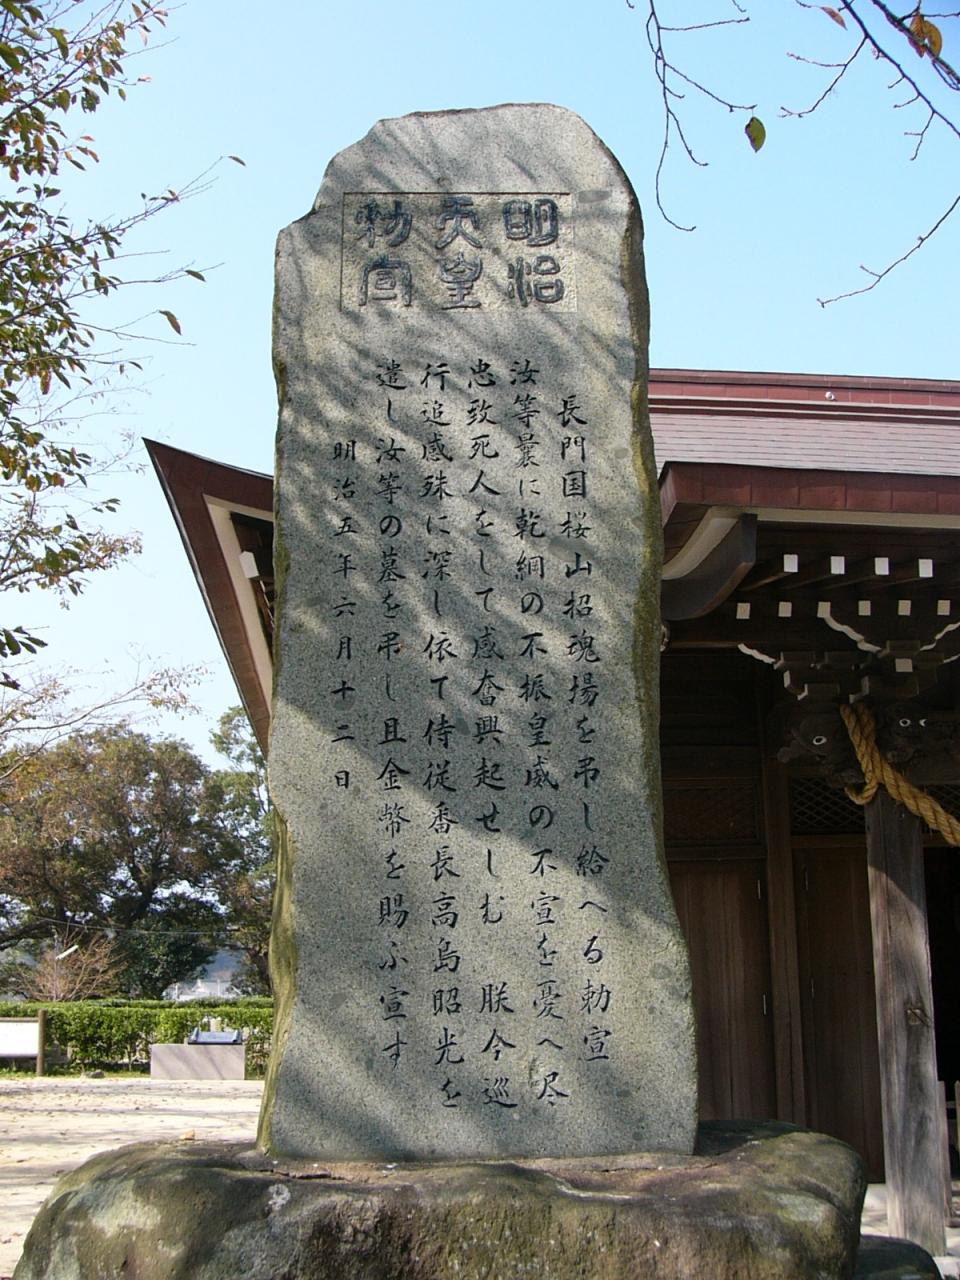 明治
天皇
勅宣
長門国桜山招魂場を弔し給へる勅宣
汝等曩に乾綱の不振皇威の不宣を憂へ尽
忠致死人をして感奮興起せしむ朕今巡
行追感殊に深し依て侍従番長高島昭光を
遣し汝等の墓を弔し且金幣を賜ふ宣す
明治五年六月十二日